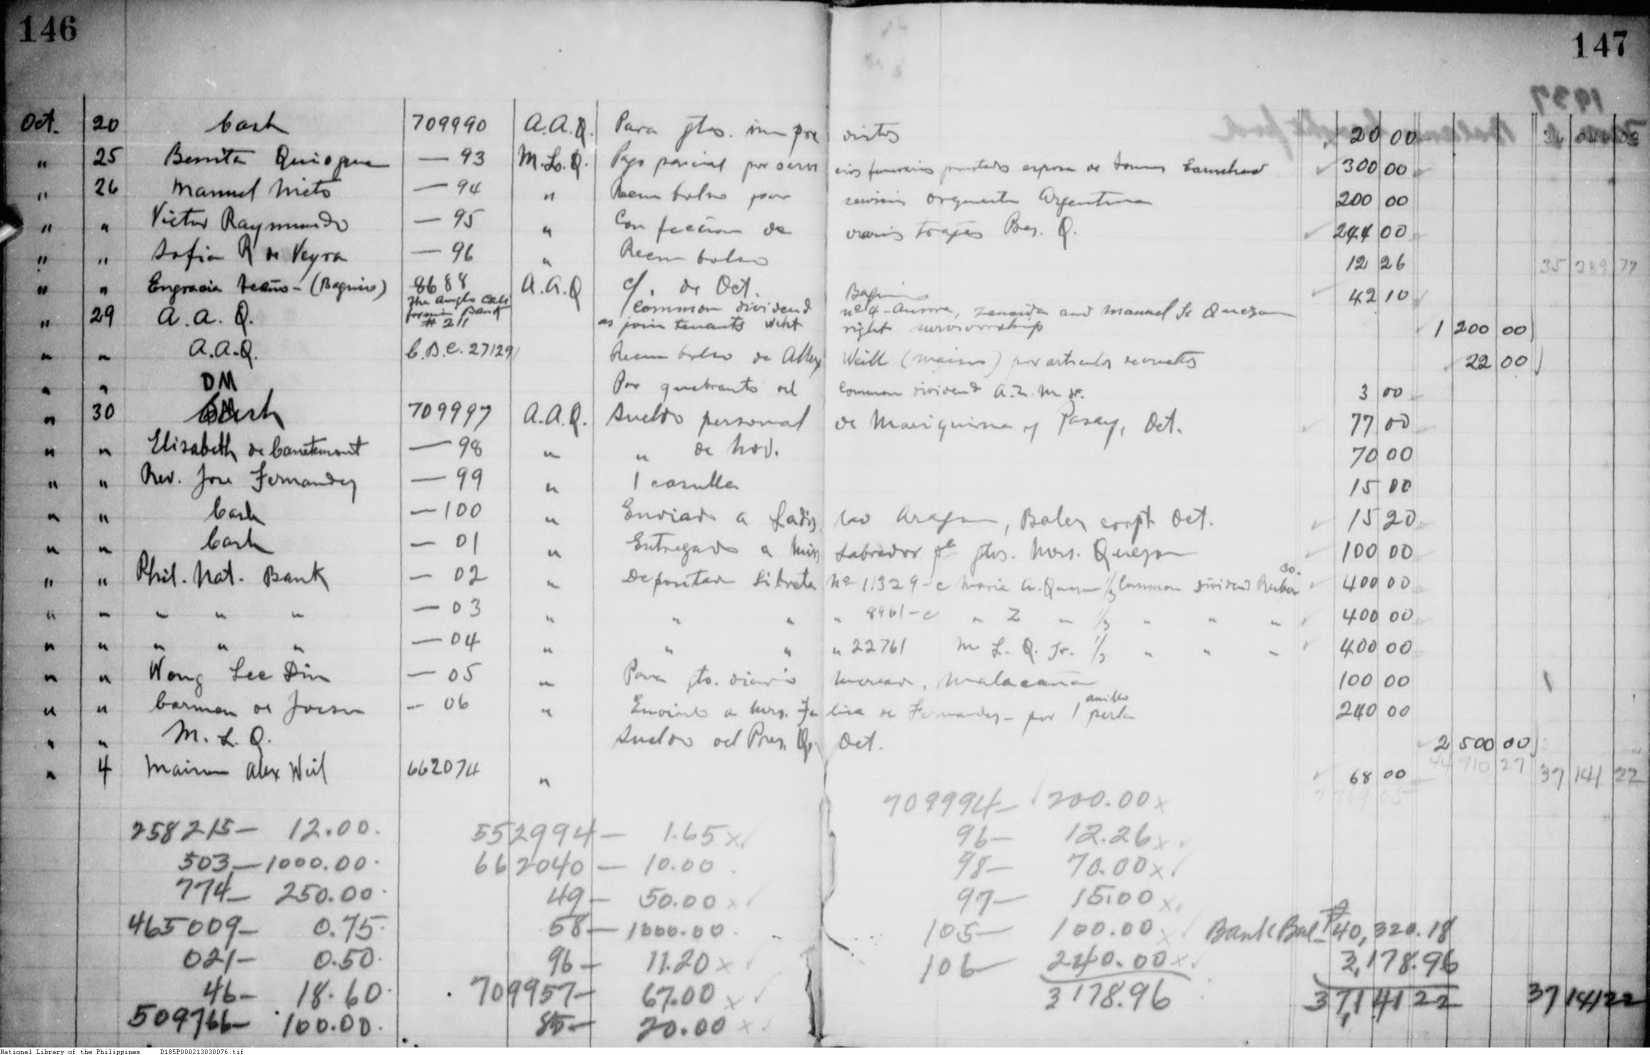 146
147
Oct. 20 Cash 709990 A.A.Q. Para gtos. imprevistos 20 00
" 25 Benita Quiogue — 93 M.L.Q. Pago parcial por servicios funerarios prestados esposa de Tomas 300 00
" 26 Manuel Nieto — 94 " Reembolso por servicios orquesta Argentina 200 00
" " Victor Raymundo — 95 " Confeccion de varios trajes Pres. Q. 244 00
" " Sofia R de Veyra — 96 " Reembolso 12 26
35 289 77
" " Engracia — (Baguio) 8688 A.A.Q c/. de Oct. Baguio 42 10
" 29 A. A. Q. The Anglo Cal. Bank # 211 Common dividend nº 4 - Aurora, Zenaida and Manuel L. Quezon
as join tenants with right survivorship 1 200 00
" " A.A.Q. C.B.C. 27129 Reembolso de Alex Weill (Maison) por articulos devueltos 22 00
" " DM Por quebranto del common dividend A.Z.M Jr. 3 00
" 30 Cash 709997 A.A.Q. Sueldo personal de Mariquina y Pasay, Oct. 77 00
" " Elizabeth de Canetemont — 98 " " de Nov. 70 00
" " Rev. Jose Fernandez — 99 " 1 casulla 15 00
" " Cash — 100 " Enviado a Aragon, Baler corpt. Oct. 15 20
" " Cash — 01 " Entregado a Miss Labrador pª gtos. Mrs. Quezon 100 00
" " Phil. Nat. Bank — 02 " Depositado libreta Nº 11329-c Maria A. Quezon 1/3 Common dividend 400 00
" " " " " — 03 " " " " 8961-c " Z " 1/3 " " " 400 00
" " " " " — 04 " " " " 22761 M. L. Q. Jr. 1/3 " " " 400 00
" " Wong Lee Din — 05 " Para gto. diario mercado, Malacañan 100 00
" " Carmen de Jocson — 06 " Enviado a Mrs. de Fernandez - por 1 anillo perla 240 00
" " M. L. Q. Sueldo del Pres. Q, Oct. 2 500 00
44 910 27
" 4 Maison Alex Weil 662074 " 68 00 37 141 22
258215— 12.00
503— 1000.00
774— 250.00
465009— 0.75
021— 0.50
46— 18.60
509766— 100.00
552994— 1.65 x
662040— 10.00
49— 50.00 x
58— 1000.00
96— 11.20 x
709957— 67.00 x
85— 20.00 x
709994— 200.00 x
96— 12.26 x
98— 70.00 x
97— 15.00 x
105— 100.00 x
106— 240.00 x
3178.96
Bank Bal— ₱40,320.18
3,178.96
37,141 22
37 141 22
National Library of the Philippines D185P000213030076.tif